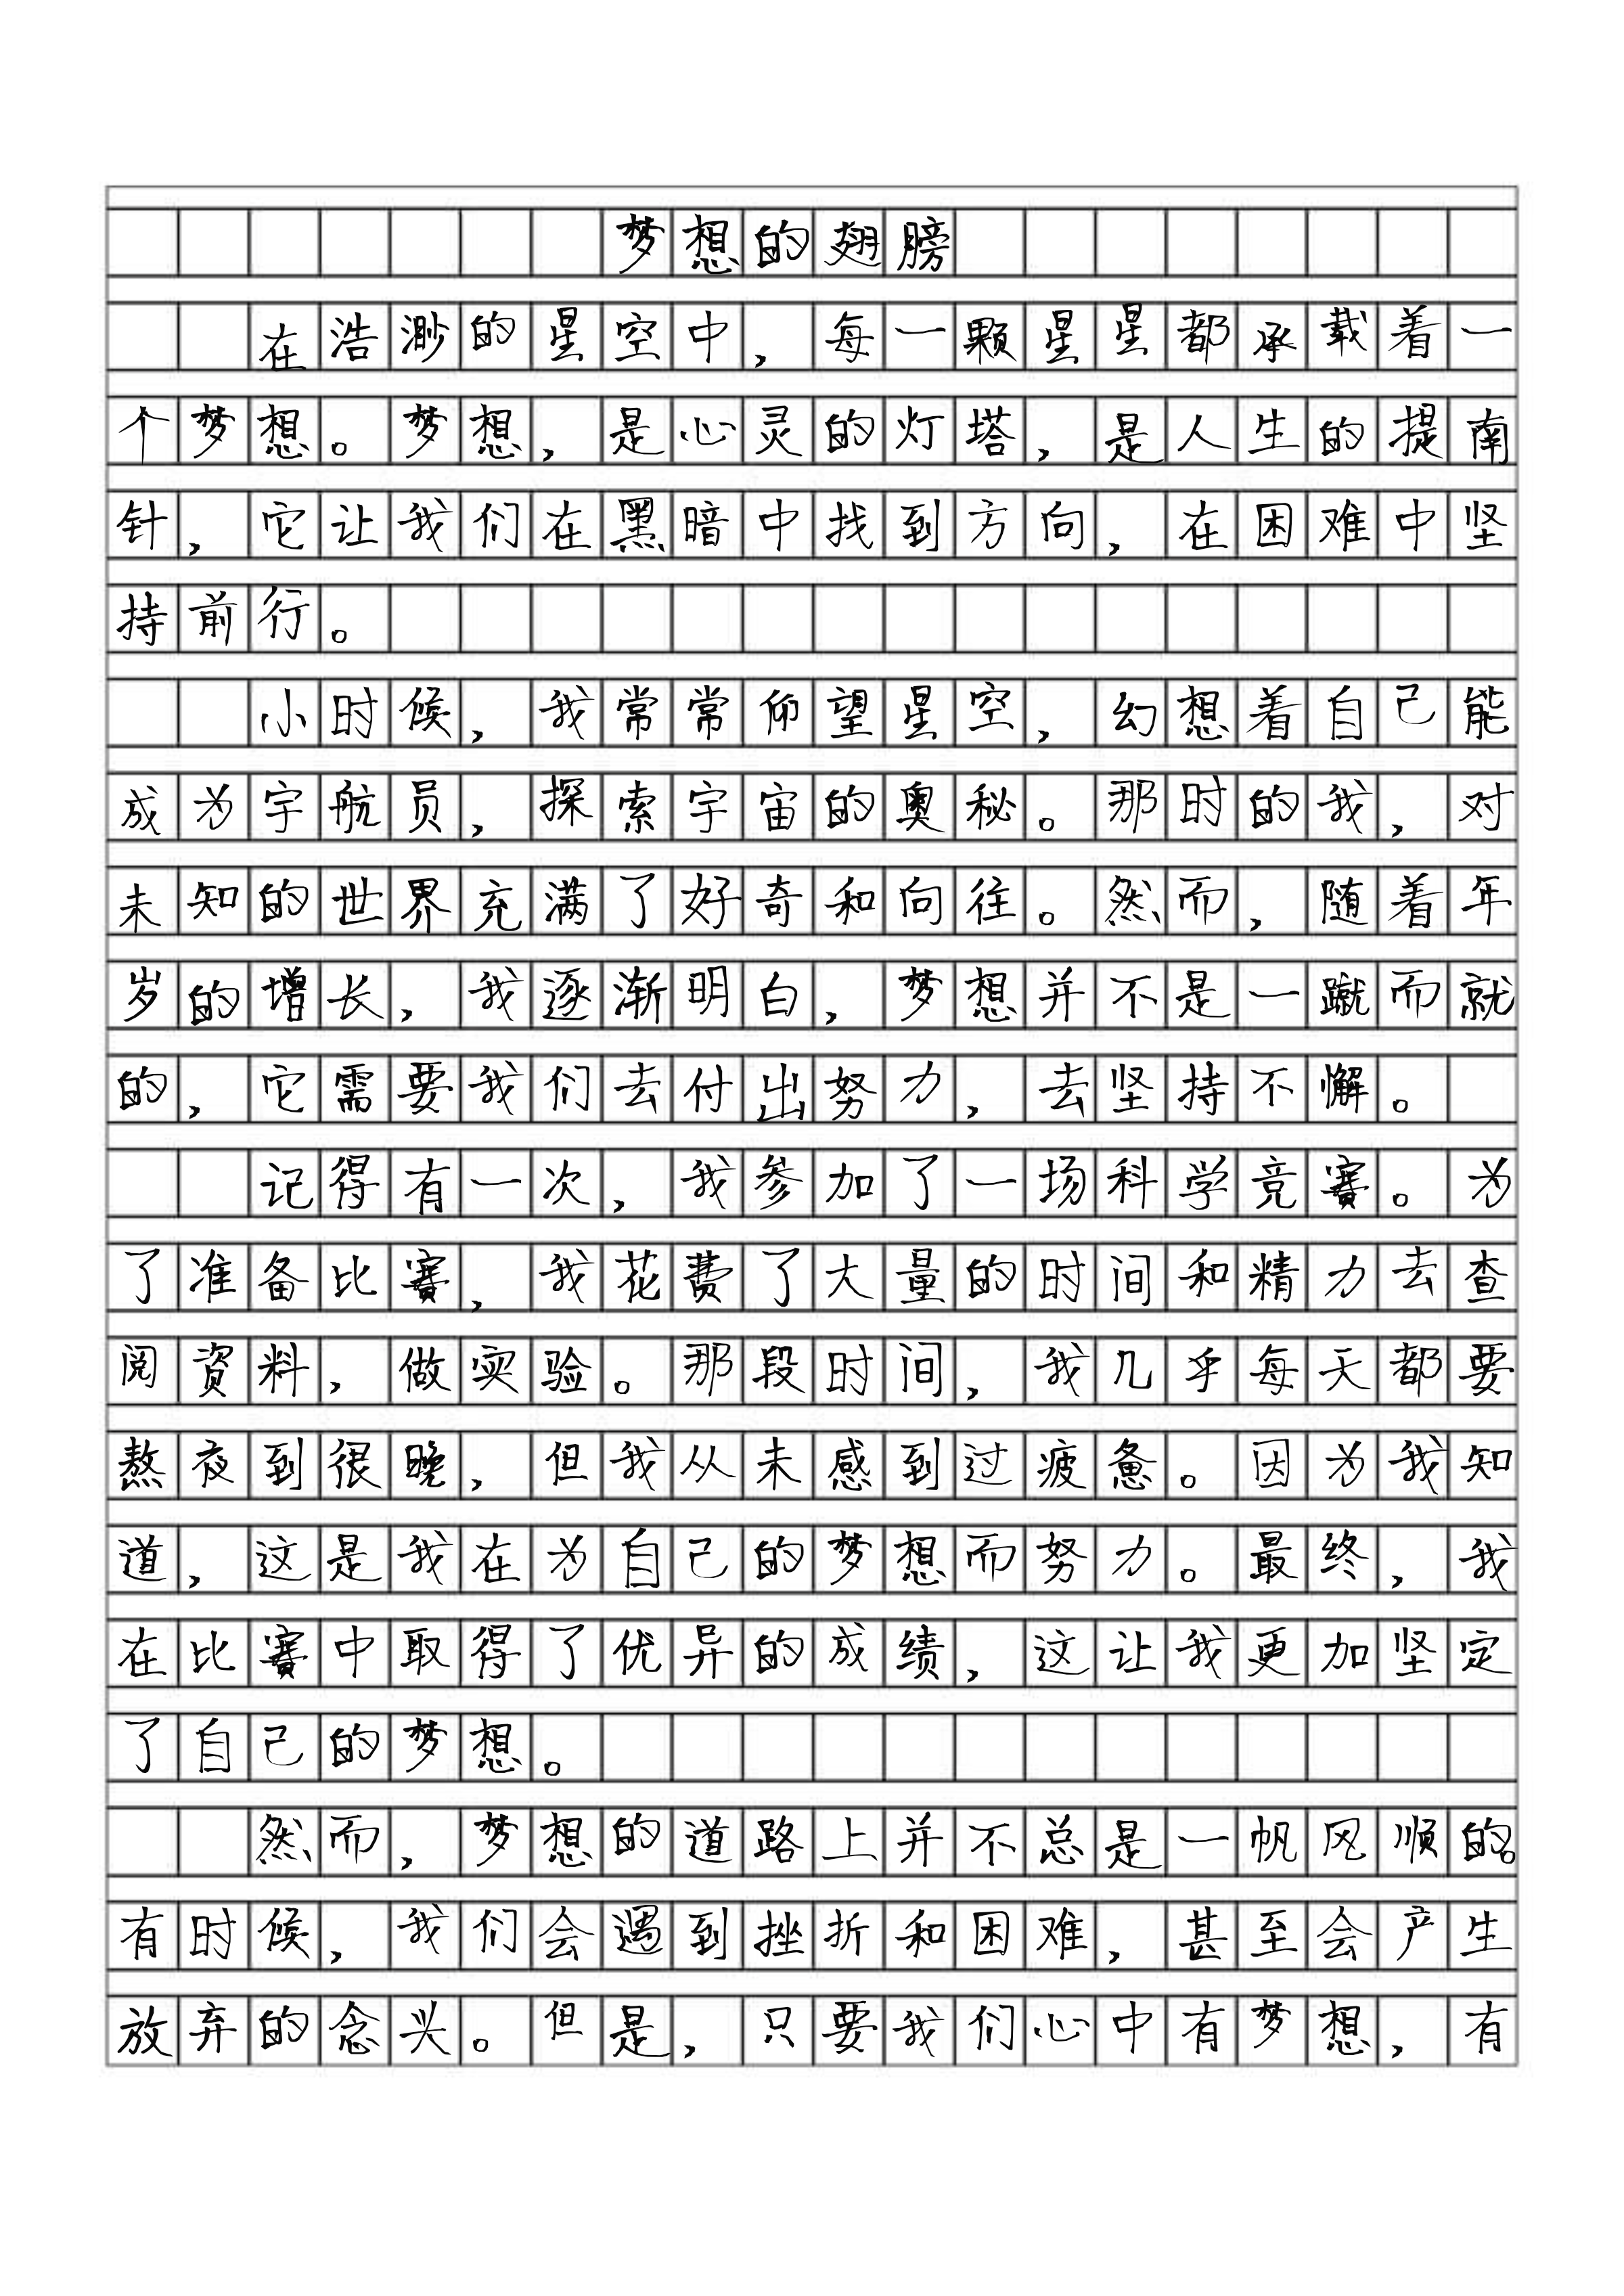 梦想的翅膀
在浩渺的星空中，每一颗星星都承载着一
个梦想。梦想，是心灵的灯塔，是人生的提南
针，它让我们在黑暗中找到方向，在困难中坚
持前行。
小时候，我常常仰望星空，幻想着自己能
成为宇航员，探索宇宙的奥秘。那时的我，对
未知的世界充满了好奇和向往。然而，随着年
岁的增长，我逐渐明白，梦想并不是一蹴而就
的，它需要我们去付出努力，去坚持不懈。
记得有一次，我参加了一场科学竞赛。为
了准备比赛，我花费了大量的时间和精力去查
阅资料，做实验。那段时间，我几乎每天都要
熬夜到很晚，但我从未感到过疲惫。因为我知
道，这是我在为自己的梦想而努力。最终，我
在比赛中取得了优异的成绩，这让我更加坚定
了自己的梦想。
然而，梦想的道路上并不总是一帆风顺的。
有时候，我们会遇到挫折和困难，甚至会产生
放弃的念头。但是，只要我们心中有梦想，有